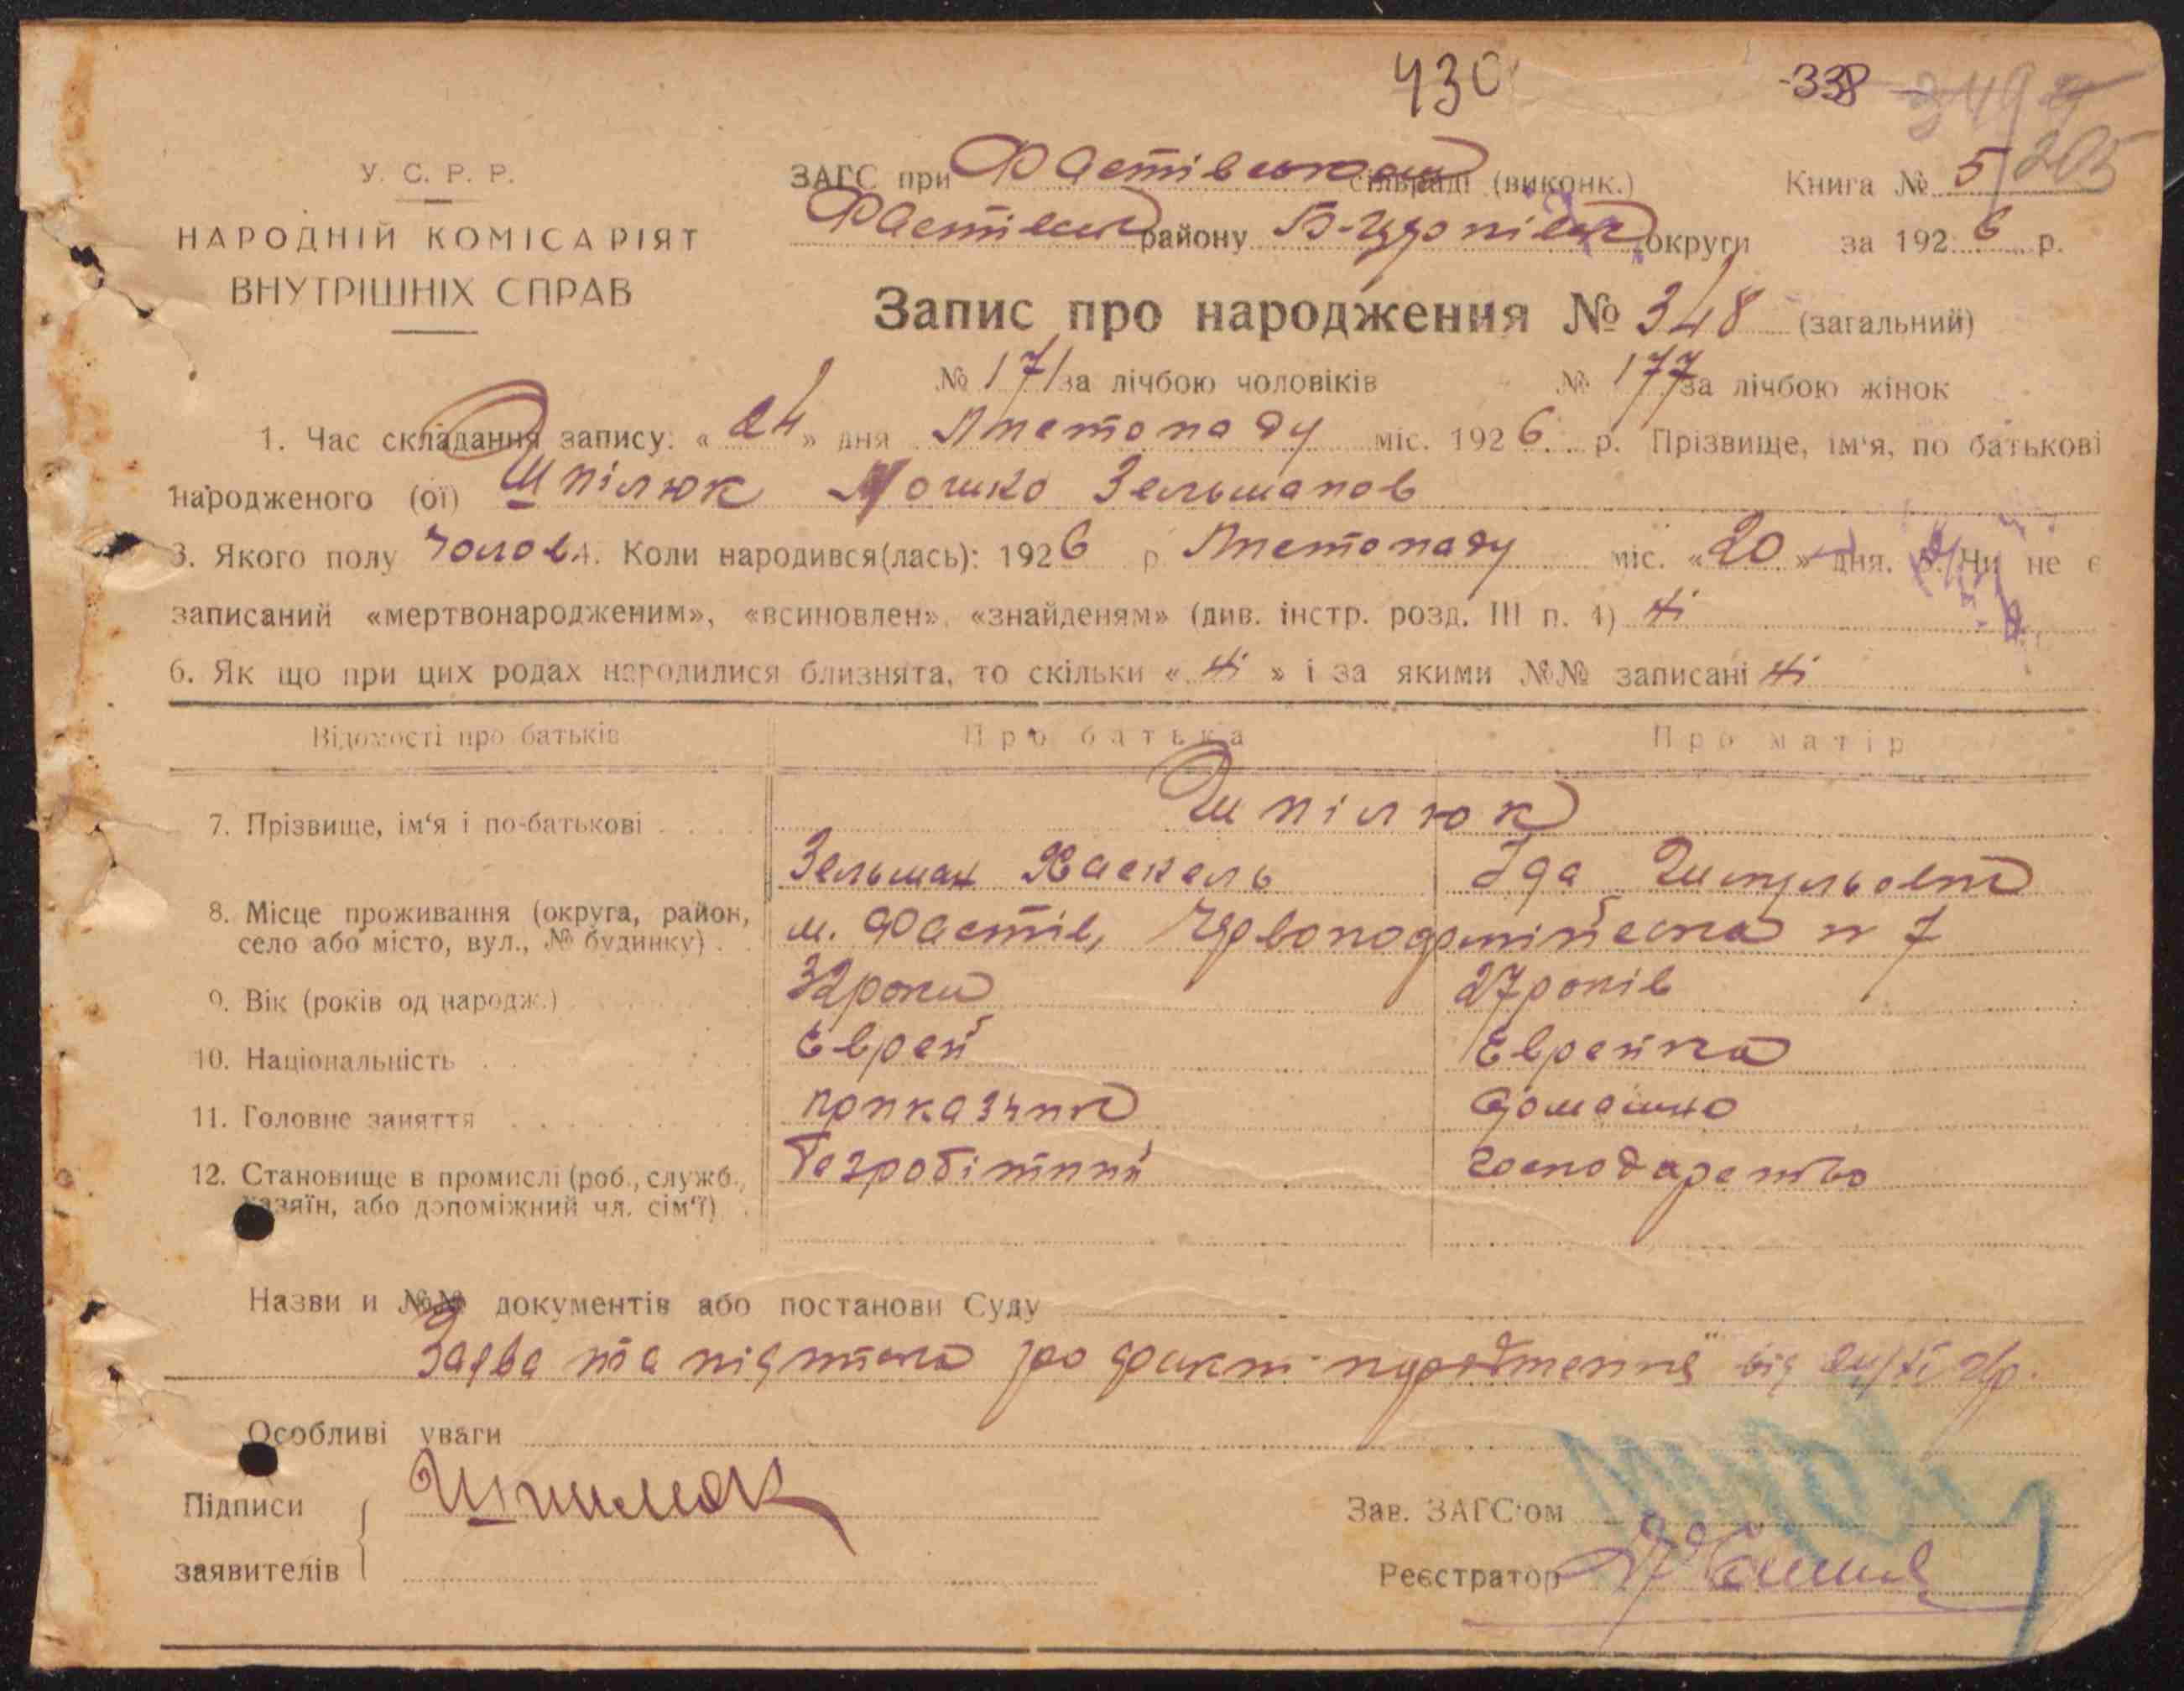 430
-338
349
У. С. Р. Р.
НАРОДНІЙ КОМІСАРІЯТ
ВНУТРІШНІХ СПРАВ
ЗАГС при Фастівськом сільраді (виконк.)
Книга № 5/205
Фастівськ району Б-Церківськ округи
за 1926 р.
Запис про народження № 348 (загальний)
№ 171 за лічбою чоловіків № 177 за лічбою жінок
1. Час складання запису: « 24 » дня Листопаду міс. 1926 р. Прізвище, ім'я, по батькові
народженого (ої) Шпілюк Мошко Зельманов
3. Якого полу чолов. 4. Коли народився(лась): 1926 р. Листопаду міс. «20» дня. 5. Чи не є
записаний «мертвонародженим», «всиновлен», «знайденям» (див. інстр. розд. III п. 4) ні
6. Як що при цих родах народилися близнята, то скільки « ні » і за якими №№ записані ні
Відомості про батьків Про батька Про матір
7. Прізвище, ім'я і по-батькові Шпілюк
Зельман Хаскель Іда
8. Місце проживання (округа, район, село або місто, вул., № будинку) м. Фастів, Червоноармійська № 7
9. Вік (років од народж.) 32 роки 27 років
10. Національність Єврей Єврейка
11. Головне заняття прика́зчик домашнє
12. Становище в промислі (роб., служб., хазяїн, або допоміжний чл. сім'ї) безробітний господарство
Назви и №№ документів або постанови Суду
Заява та підписка ро факт народження від 24/XI 26р.
Особливі уваги
Підписи
заявителів
Зав. ЗАГС'ом
Реєстратор